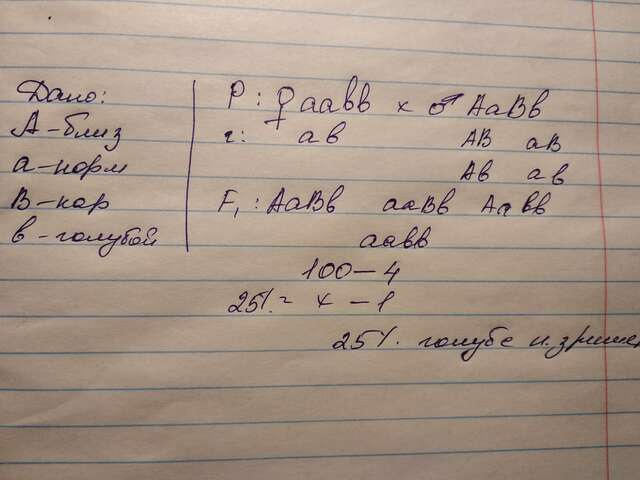 Дано:
А-близ
а-норм
В-кар
в-голубой
P: ♀ аавв × ♂ АаВв
г: ав АВ аВ
Ав ав
F₁: АаВв ааВв Аавв
аавв
100-4
25%= х - 1
25%. голубе н.зрише